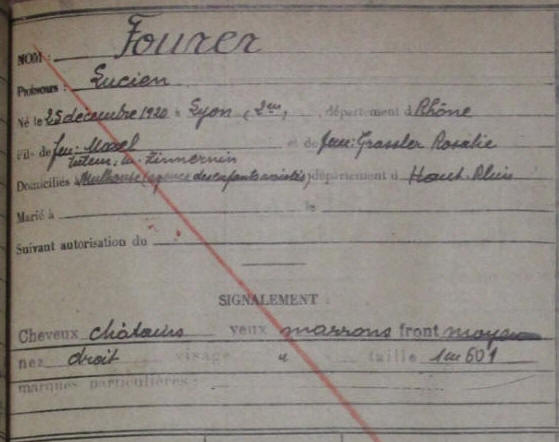 NOM : Fourer
Prénoms : Lucien
Né le 25 décembre 1920 à Lyon (2me) département d Rhône
Fils de feu: Marcel et de feue: Grassler Rosalie
tuteur: Mr. Zinnernin
Domiciliés à Mulhouse (agence des enfants assistés) département d Haut-Rhin
Marié à le
Suivant autorisation du
SIGNALEMENT :
Cheveux châtains yeux marrons front moyen
nez droit visage " taille 1m 601
marques particulières :